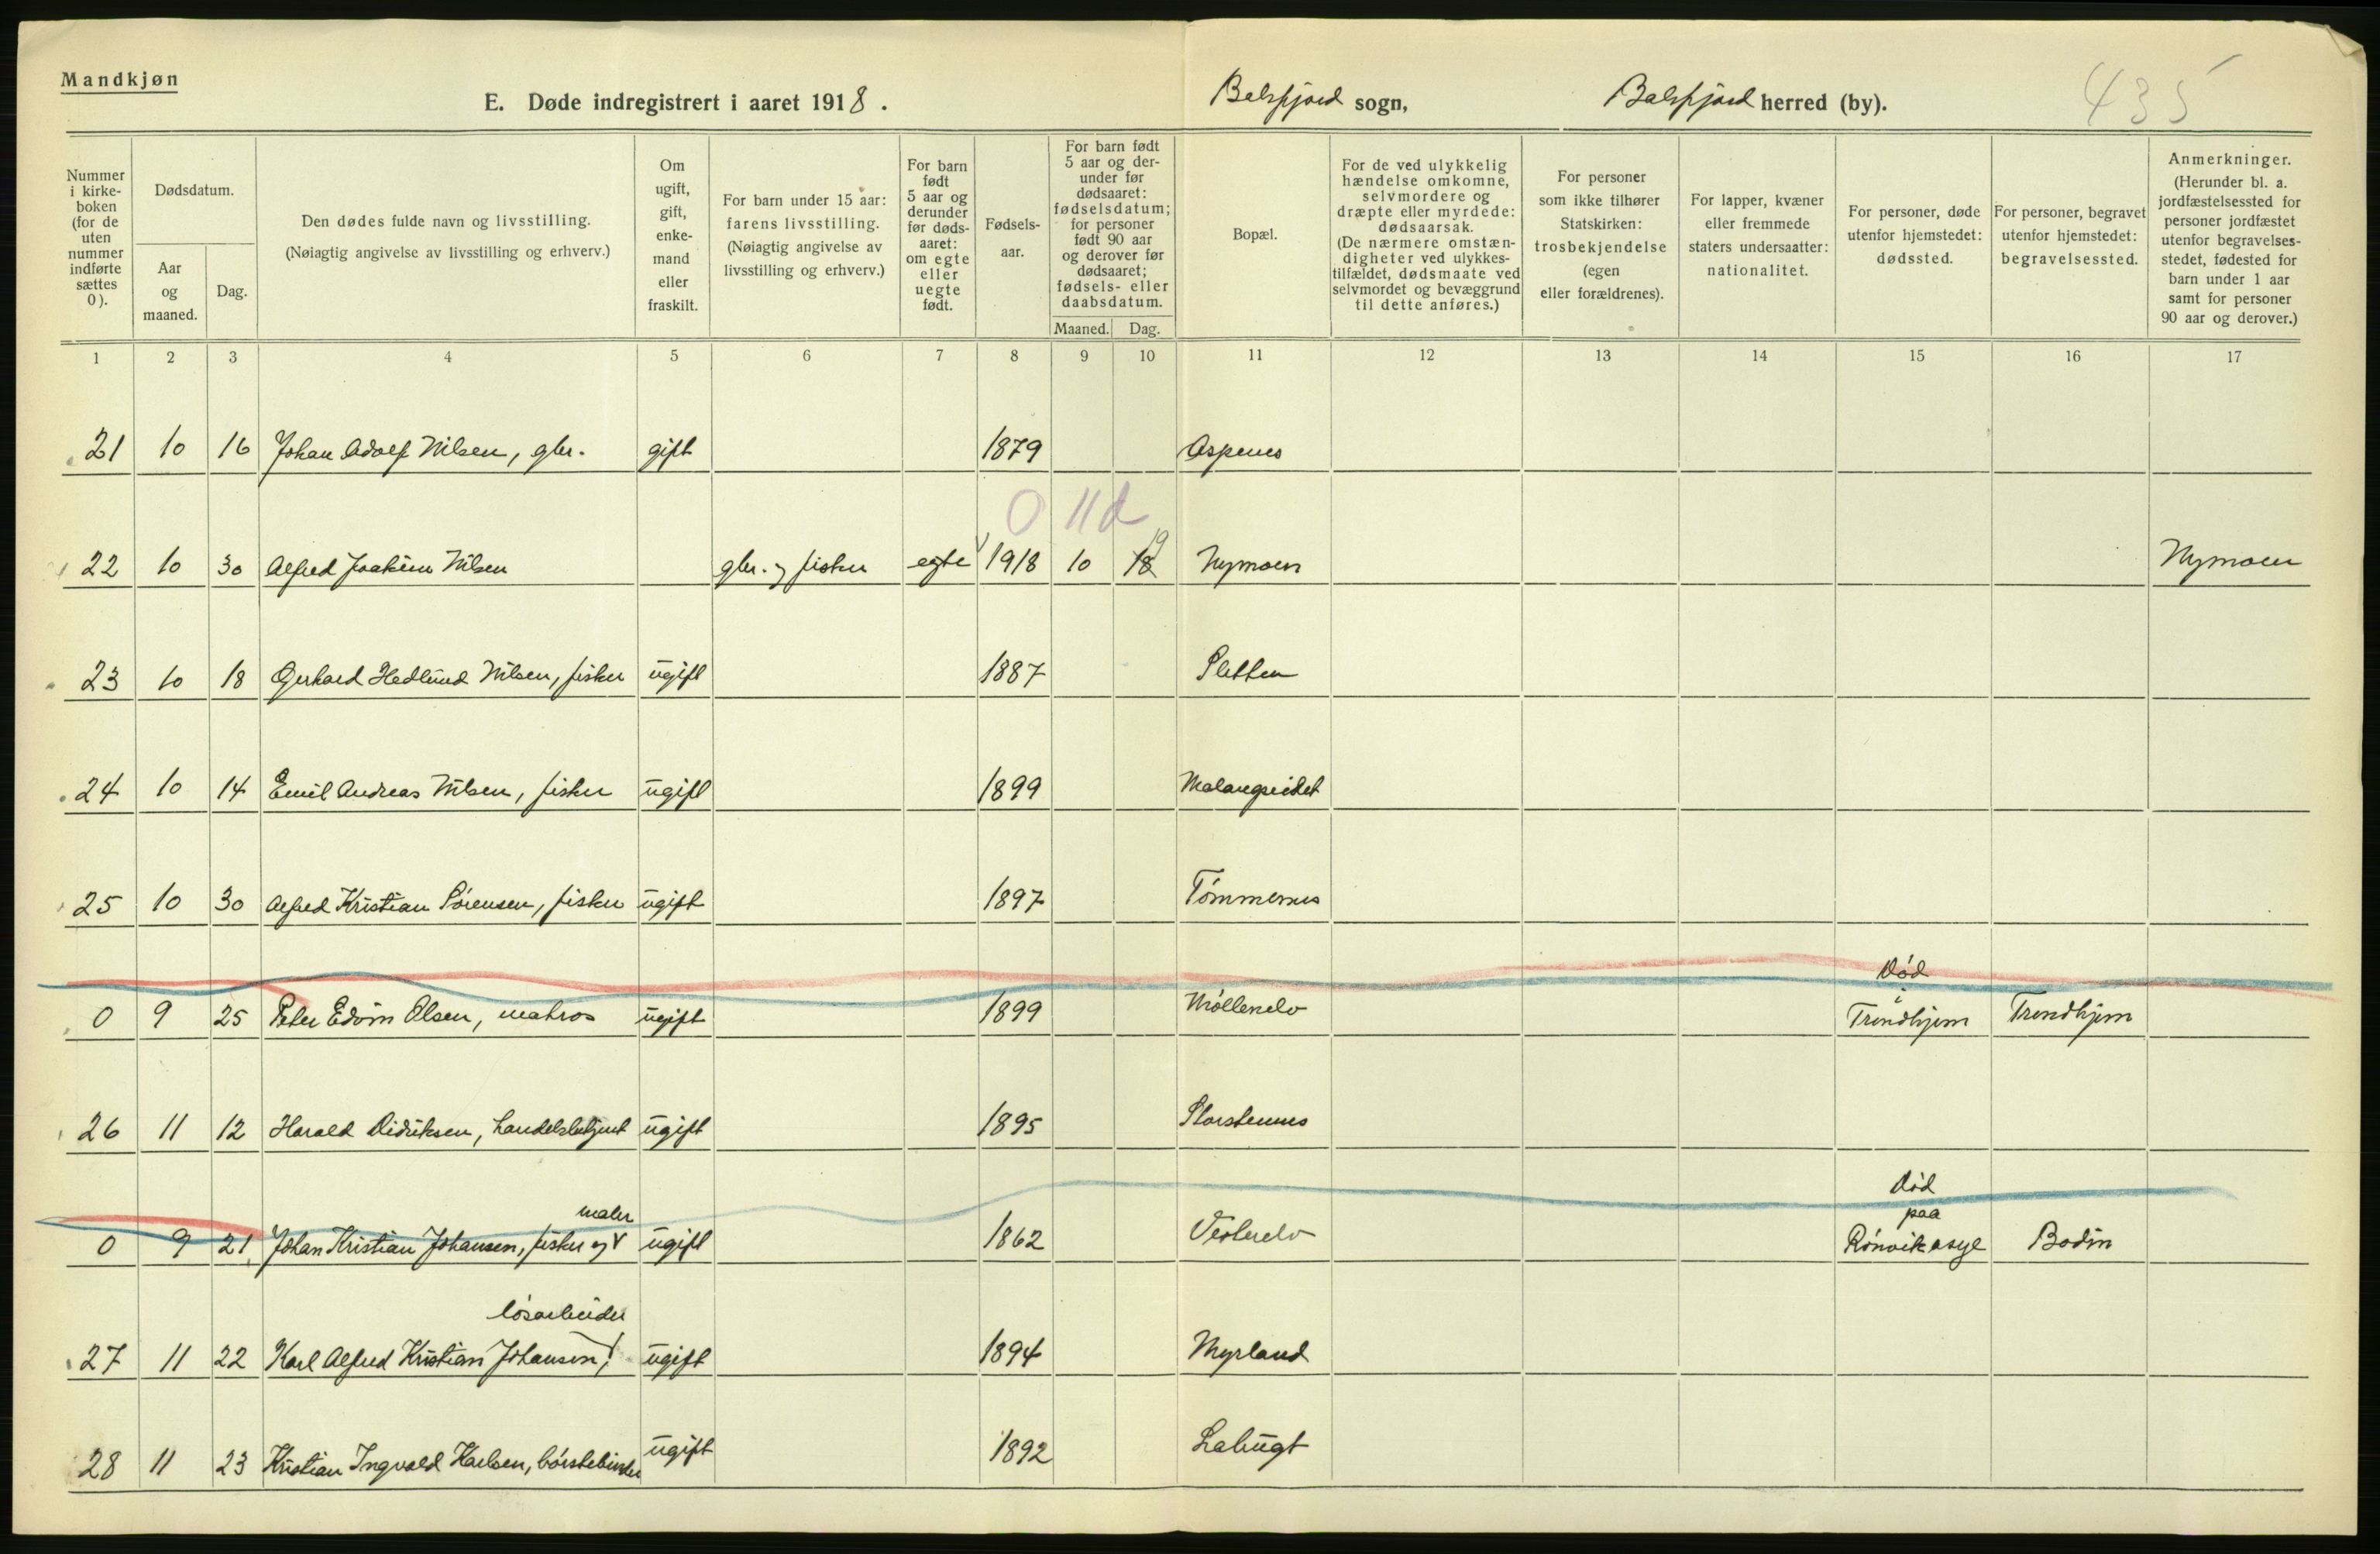 Mandkjøn
E. Døde indregistrert i aaret 1918.
Balsfjord sogn, Balsfjord herred (by). 435
Nummer i kirke-boken (for de uten nummer indførte sættes 0).
Dødsdatum.
Aar og maaned.
Dag.
Den dødes fulde navn og livsstilling.
(Nøiagtig angivelse av livsstilling og erhverv.)
Om ugift, gift, enke-mand eller fraskilt.
For barn under 15 aar: farens livsstilling. (Nøiagtig angivelse av livsstilling og erhverv.)
For barn født 5 aar og derunder før døds-aaret: om egte eller uegte født.
Fødsels-aar.
For barn født 5 aar og der-under før dødsaaret: fødselsdatum; for personer født 90 aar og derover før dødsaaret; fødsels- eller daabsdatum.
Maaned. Dag.
Bopæl.
For de ved ulykkelig hændelse omkomne, selvmordere og dræpte eller myrdede: dødsaarsak. (De nærmere omstæn-digheter ved ulykkes-tilfældet, dødsmaate ved selvmordet og bevæggrund til dette anføres.)
For personer som ikke tilhører Statskirken: trosbekjendelse (egen eller forældrenes).
For lapper, kvæner eller fremmede staters undersaatter: nationalitet.
For personer, døde utenfor hjemstedet: dødssted.
For personer, begravet utenfor hjemstedet: begravelsessted.
Anmerkninger. (Herunder bl. a. jordfæstelsessted for personer jordfæstet utenfor begravelses-stedet, fødested for barn under 1 aar samt for personer 90 aar og derover.)
1 2 3 4 5 6 7 8 9 10 11 12 13 14 15 16 17
21 10 16 Johan Adolf Nilsen, gbr. gift 1879 Aspenes
0 11d
22 10 30 Alfred Joakim Nilsen gbr. og fisker egte 1918 10 18 19 Nymoen Nymoen
23 10 18 Gerhard Hedlund Nilsen, fisker ugift 1887 Sletten
24 10 14 Emil Andreas Nilsen, fisker ugift 1899 Malangseidet
25 10 30 Alfred Kristian Sørensen, fisker ugift 1897 Tømmernes
0 9 25 Peter Edvin Olsen, matros ugift 1899 Møllenelv Død i Trondhjem Trondhjem
26 11 12 Harald Didriksen, handelsbetjent ugift 1895 Storstennes
0 9 21 Johan Kristian Johansen, fisker og maler ugift 1862 Vesterelv Død paa Rønvik asyl Bodin
27 11 22 Karl Alfred Kristian Johansen, løsarbeider ugift 1894 Myrland
28 11 23 Kristian Ingvald Karlsen, børstebinder ugift 1892 Labugt